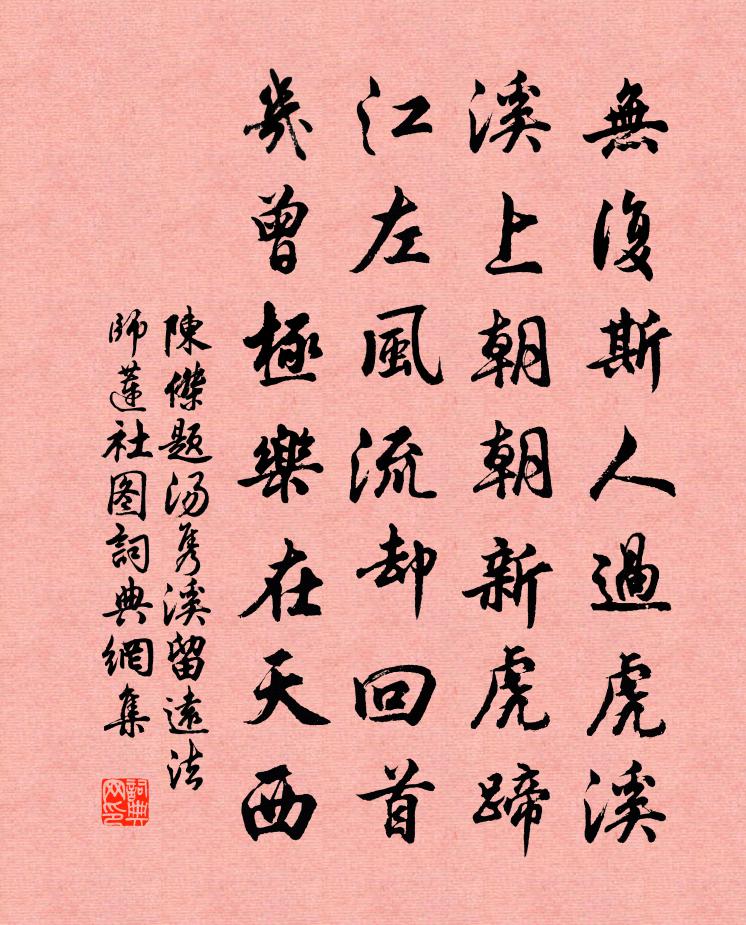 無復斯人過虎溪
溪上朝朝新虎蹄
江左風流却回首
幾曾極樂在天西
陳傑題汤隽溪留遠法
師蓮社图詞典網集
詞典网印